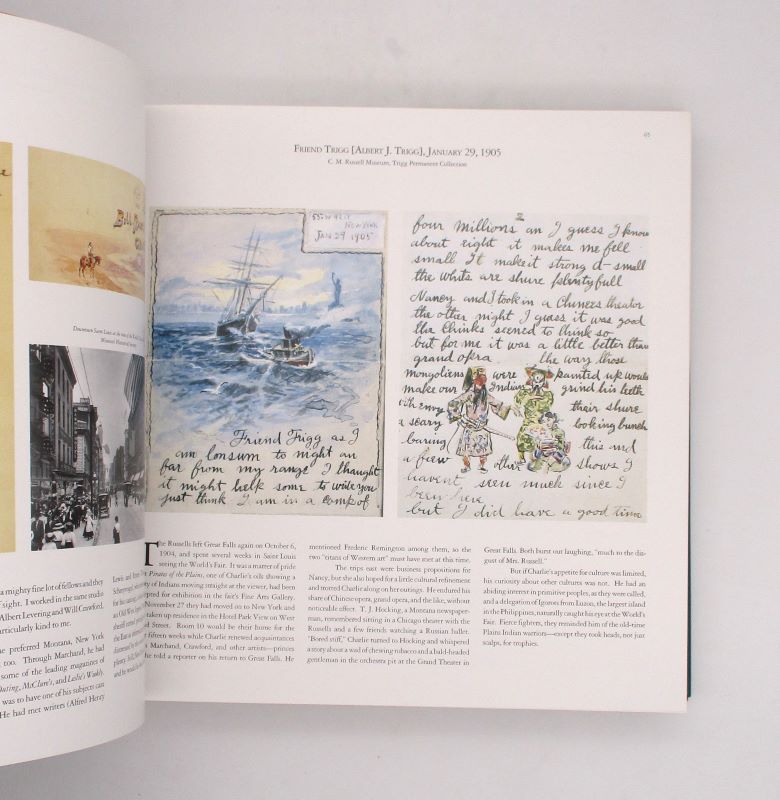 Downtown Saint Louis at the time of the World's
a mighty fine lot of fellows and they
sight. I worked in the same studio
Albert Levering and Will Crawford,
articularly kind to me.
he preferred Montana, New York
too. Through Marchand, he had
some of the leading magazines of
Outing, McClure's, and Leslie's Weekly.
was to have one of his subjects can
He had met writers (Alfred Henry
65
FRIEND TRIGG [ALBERT J. TRIGG], JANUARY 29, 1905
C. M. Russell Museum, Trigg Permanent Collection
New York
JAN 29 1905
Friend Trigg as I
am lonsum to night an
far from my range I thaught
it might help some to write you
just think I am in a camp of
2
four millions an I guess I know
about eight it makes me fell
small It make it strong a small
the whits are shure plentyfull
Nancy and I took in a Chinees theator
the other night I guess it was good
tha Chinks seemed to think so
but for me it was a little better than
grand opra. the way those
mongoliens were painted up would
make our Indians grind his teeth
with envy thair shure
a scary looking bunch
baring this and
a few other shows I
havent seen much since I
been here
but I did have a good time
The Russells left Great Falls again on October 6,
1904, and spent several weeks in Saint Louis
seeing the World's Fair. It was a matter of pride
Pirates of the Plains, one of Charlie's oils showing a
of Indians moving straight at the viewer, had been
accepted for exhibition in the fair's Fine Arts Gallery.
November 27 they had moved on to New York and
taken up residence in the Hotel Park View on West
Street. Room 10 would be their home for the
fifteen weeks while Charlie renewed acquaintances
Marchand, Crawford, and other artists—princes
he told a reporter on his return to Great Falls. He
mentioned Frederic Remington among them, so the
two "titans of Western art" must have met at this time.
The trips east were business propositions for
Nancy, but she also hoped for a little cultural refinement
and trotted Charlie along on her outings. He endured his
share of Chinese opera, grand opera, and the like, without
noticeable effect. T. J. Hocking, a Montana newspaper-
man, remembered sitting in a Chicago theater with the
Russells and a few friends watching a Russian ballet.
"Bored stiff," Charlie turned to Hocking and whispered
a story about a wad of chewing tobacco and a bald-headed
gentleman in the orchestra pit at the Grand Theater in
Great Falls. Both burst out laughing, "much to the dis-
gust of Mrs. Russell."
But if Charlie's appetite for culture was limited,
his curiosity about other cultures was not. He had an
abiding interest in primitive peoples, as they were called,
and a delegation of Igorots from Luzon, the largest island
in the Philippines, naturally caught his eye at the World's
Fair. Fierce fighters, they reminded him of the old-time
Plains Indian warriors—except they took heads, not just
scalps, for trophies.